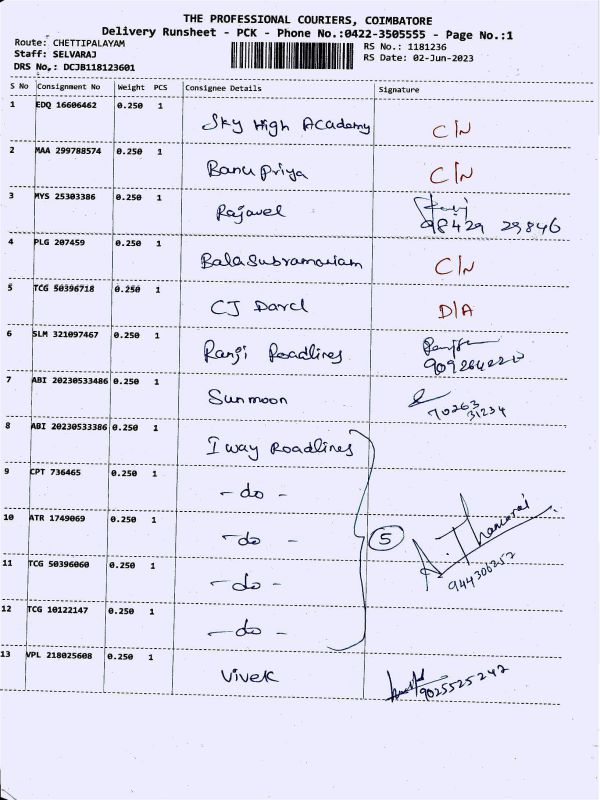 THE PROFESSIONAL COURIERS, COIMBATORE
Delivery Runsheet - PCK - Phone No.:0422-3505555 - Page No.:1
Route: CHETTIPALAYAM
RS No.: 1181236
Staff: SELVARAJ
RS Date: 02-Jun-2023
DRS No,: DCJB118123601
S No Consignment No Weight PCS Consignee Details Signature
1 EDQ 16606462 0.250 1 Sky High Academy C/N
2 MAA 299788574 0.250 1 Banu Priya C/N
3 MYS 25303386 0.250 1 Rajavel
98429 29846
4 PLG 207459 0.250 1 BalaSubramaniam C/N
5 TCG 50396718 0.250 1 CJ Darcl D/A
6 SLM 321097467 0.250 1 Ranji Roadlines
7 ABI 20230533486 0.250 1 Sunmoon
70263
31234
8 ABI 20230533386 0.250 1 I way Roadlines
9 CPT 736465 0.250 1 - do -
10 ATR 1749069 0.250 1 - do - 5 A. Thangaraj
944306252
11 TCG 50396060 0.250 1 - do -
12 TCG 10122147 0.250 1 - do -
13 VPL 218025608 0.250 1 Vivek
9025525242